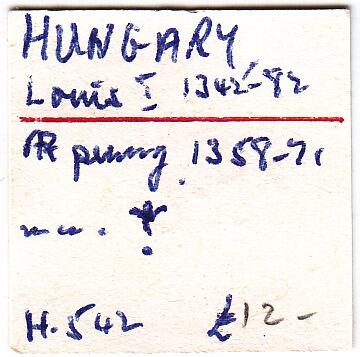 HUNGARY
Louis I 1342-82
Æ penny 1358-71
m.m.
H.542 £12-